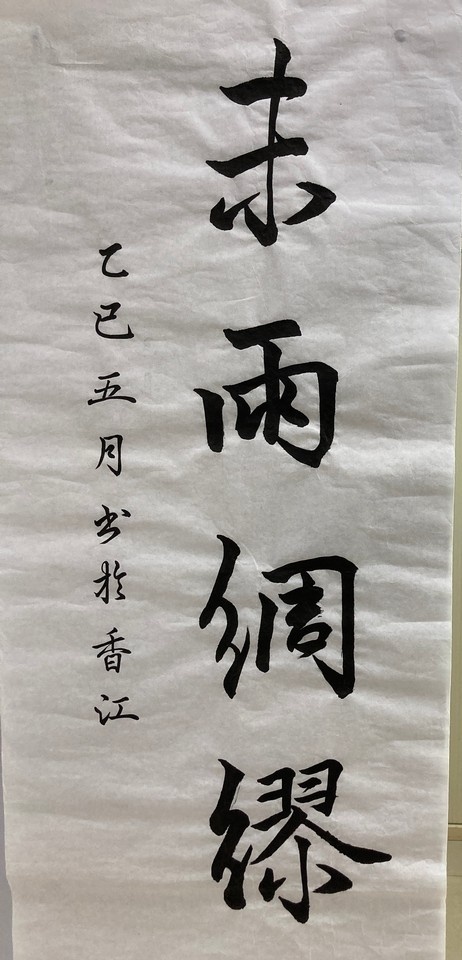 未雨綢繆
乙巳五月书於香江